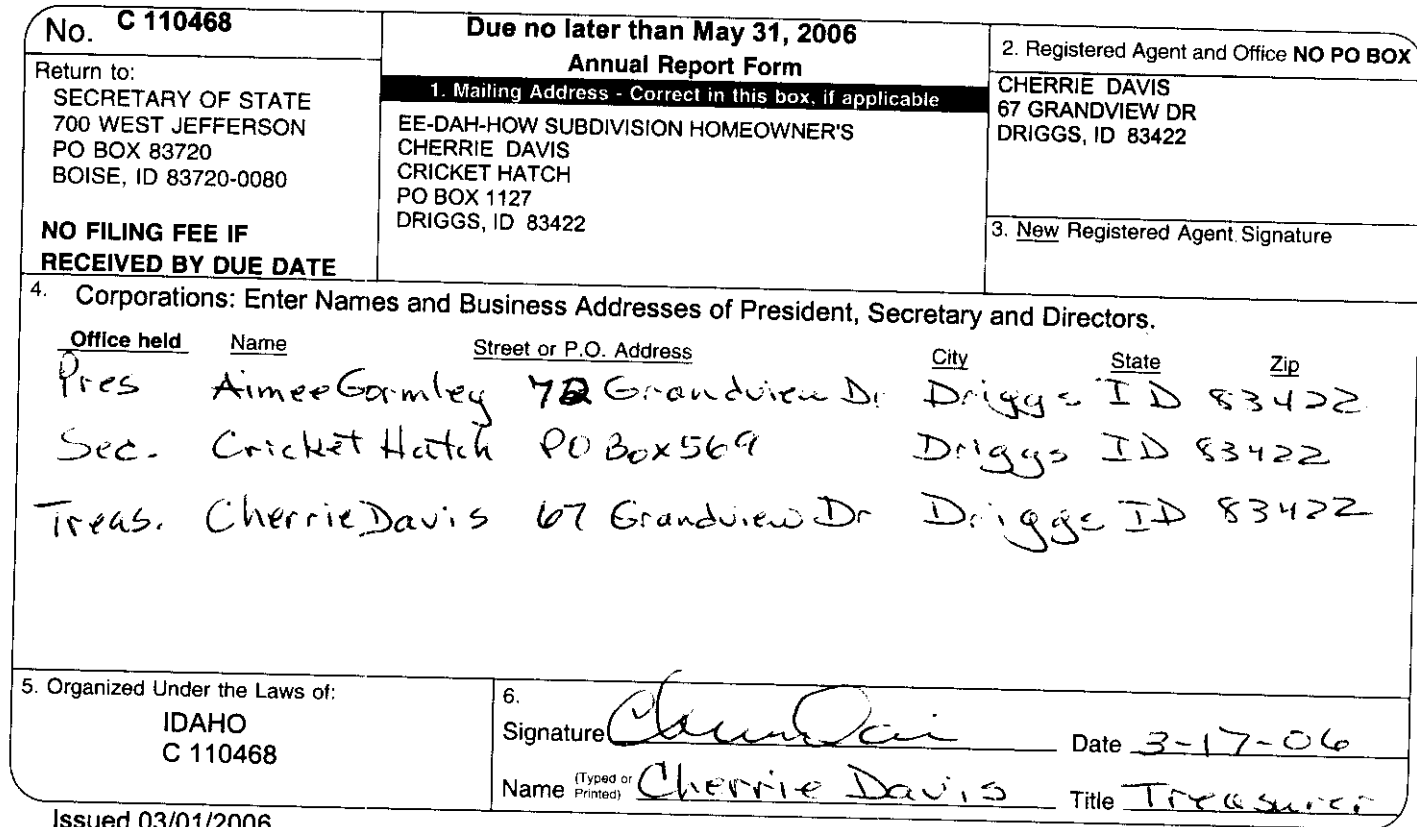 No. C 110468
Return to:
SECRETARY OF STATE
700 WEST JEFFERSON
PO BOX 83720
BOISE, ID 83720-0080
NO FILING FEE IF
RECEIVED BY DUE DATE
Due no later than May 31, 2006
Annual Report Form
1. Mailing Address - Correct in this box, if applicable
EE-DAH-HOW SUBDIVISION HOMEOWNER'S
CHERRIE DAVIS
CRICKET HATCH
PO BOX 1127
DRIGGS, ID 83422
2. Registered Agent and Office NO PO BOX
CHERRIE DAVIS
67 GRANDVIEW DR
DRIGGS, ID 83422
3. New Registered Agent Signature
4. Corporations: Enter Names and Business Addresses of President, Secretary and Directors.
Office held Name Street or P.O. Address City State Zip
Pres Aimee Gormley Grandview Dr Driggs ID 83422
Sec. Cricket Hatch PO Box 569 Driggs ID 83422
Treas. Cherrie Davis 67 Grandview Dr Driggs ID 83422
5. Organized Under the Laws of:
IDAHO
C 110468
6.
Signature Date 3-17-06
Name (Typed or Printed) Cherrie Davis Title Treasurer
Issued 03/01/2006